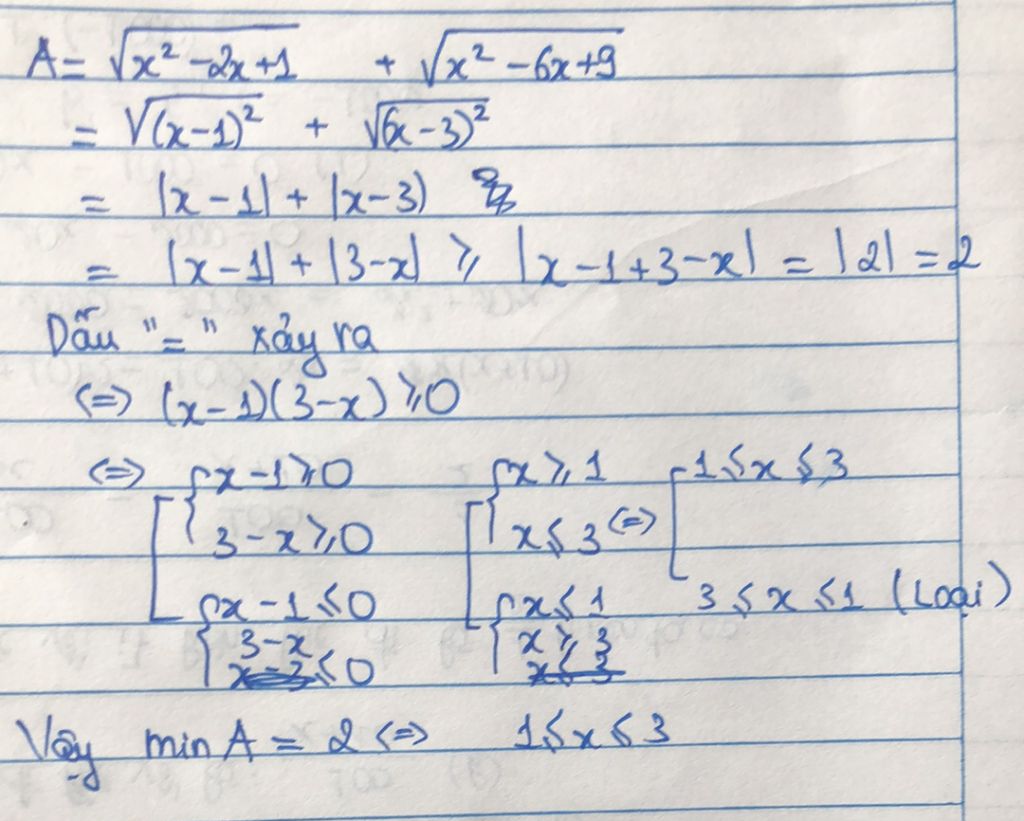 A = √(x² - 2x + 1) + √(x² - 6x + 9)
= √(x - 1)² + √(x - 3)²
= |x - 1| + |x - 3)
= |x - 1| + |3 - x| ≥ |x - 1 + 3 - x| = |2| = 2
Dấu "=" xảy ra
<=> (x - 1)(3 - x) ≥ 0
<=> [ { x - 1 ≥ 0 [ { x ≥ 1 [ 1 ≤ x ≤ 3
3 - x ≥ 0 x ≤ 3 <=>
{ x - 1 ≤ 0 { x ≤ 1 3 ≤ x ≤ 1 (Loại)
3 - x ≤ 0 x ≥ 3
Vậy min A = 2 <=> 1 ≤ x ≤ 3